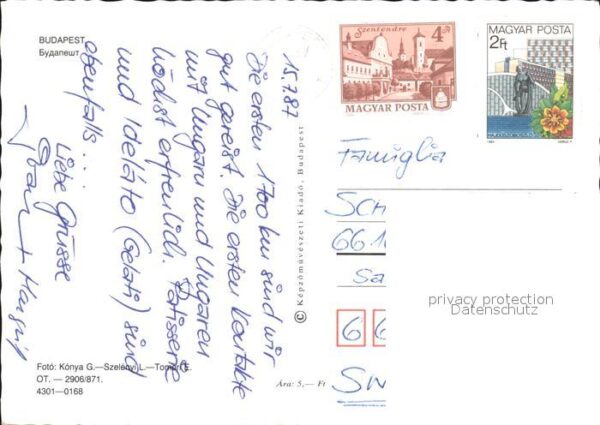 BUDAPEST
Будапешт
15.7.87
Die ersten 1700 km sind wir
gut gereist. Die ersten Kontakte
mit Ungarn und Ungaren
höchst erfreulich. Patisserie
und Idelato (Gelati) sind
ebenfalls ...
Liebe Grüsse
+ Margrit
Fotó: Kónya G.—Szelényi L.—Tomori E.
OT. — 2906/871.
4301—0168
© Képzőművészeti Kiadó, Budapest
Ára: 5,— Ft
Szentendre
4 Ft
MAGYAR POSTA
MAGYAR POSTA
2 Ft
Famiglia
SCH
66 1
Sa
6 6
SW
privacy protection
Datenschutz